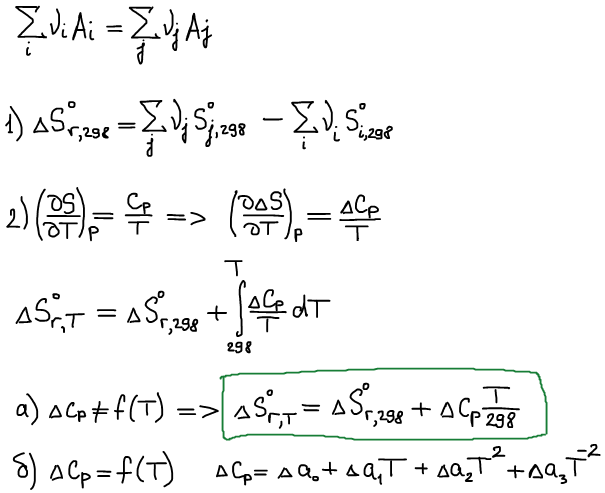 ∑_i ν_i A_i = ∑_j ν_j A_j
1) ΔS°_{r,298} = ∑_j ν_j S°_{j,298} − ∑_i ν_i S°_{i,298}
2) (∂S/∂T)_P = C_P/T => (∂ΔS/∂T)_P = ΔC_P/T
ΔS°_{r,T} = ΔS°_{r,298} + ∫_{298}^{T} ΔC_P/T dT
а) ΔC_P ≠ f(T) => ΔS°_{r,T} = ΔS°_{r,298} + ΔC_P T/298
б) ΔC_P = f(T) ΔC_P = Δa₀ + Δa₁T + Δa₂T² + Δa₃T⁻²